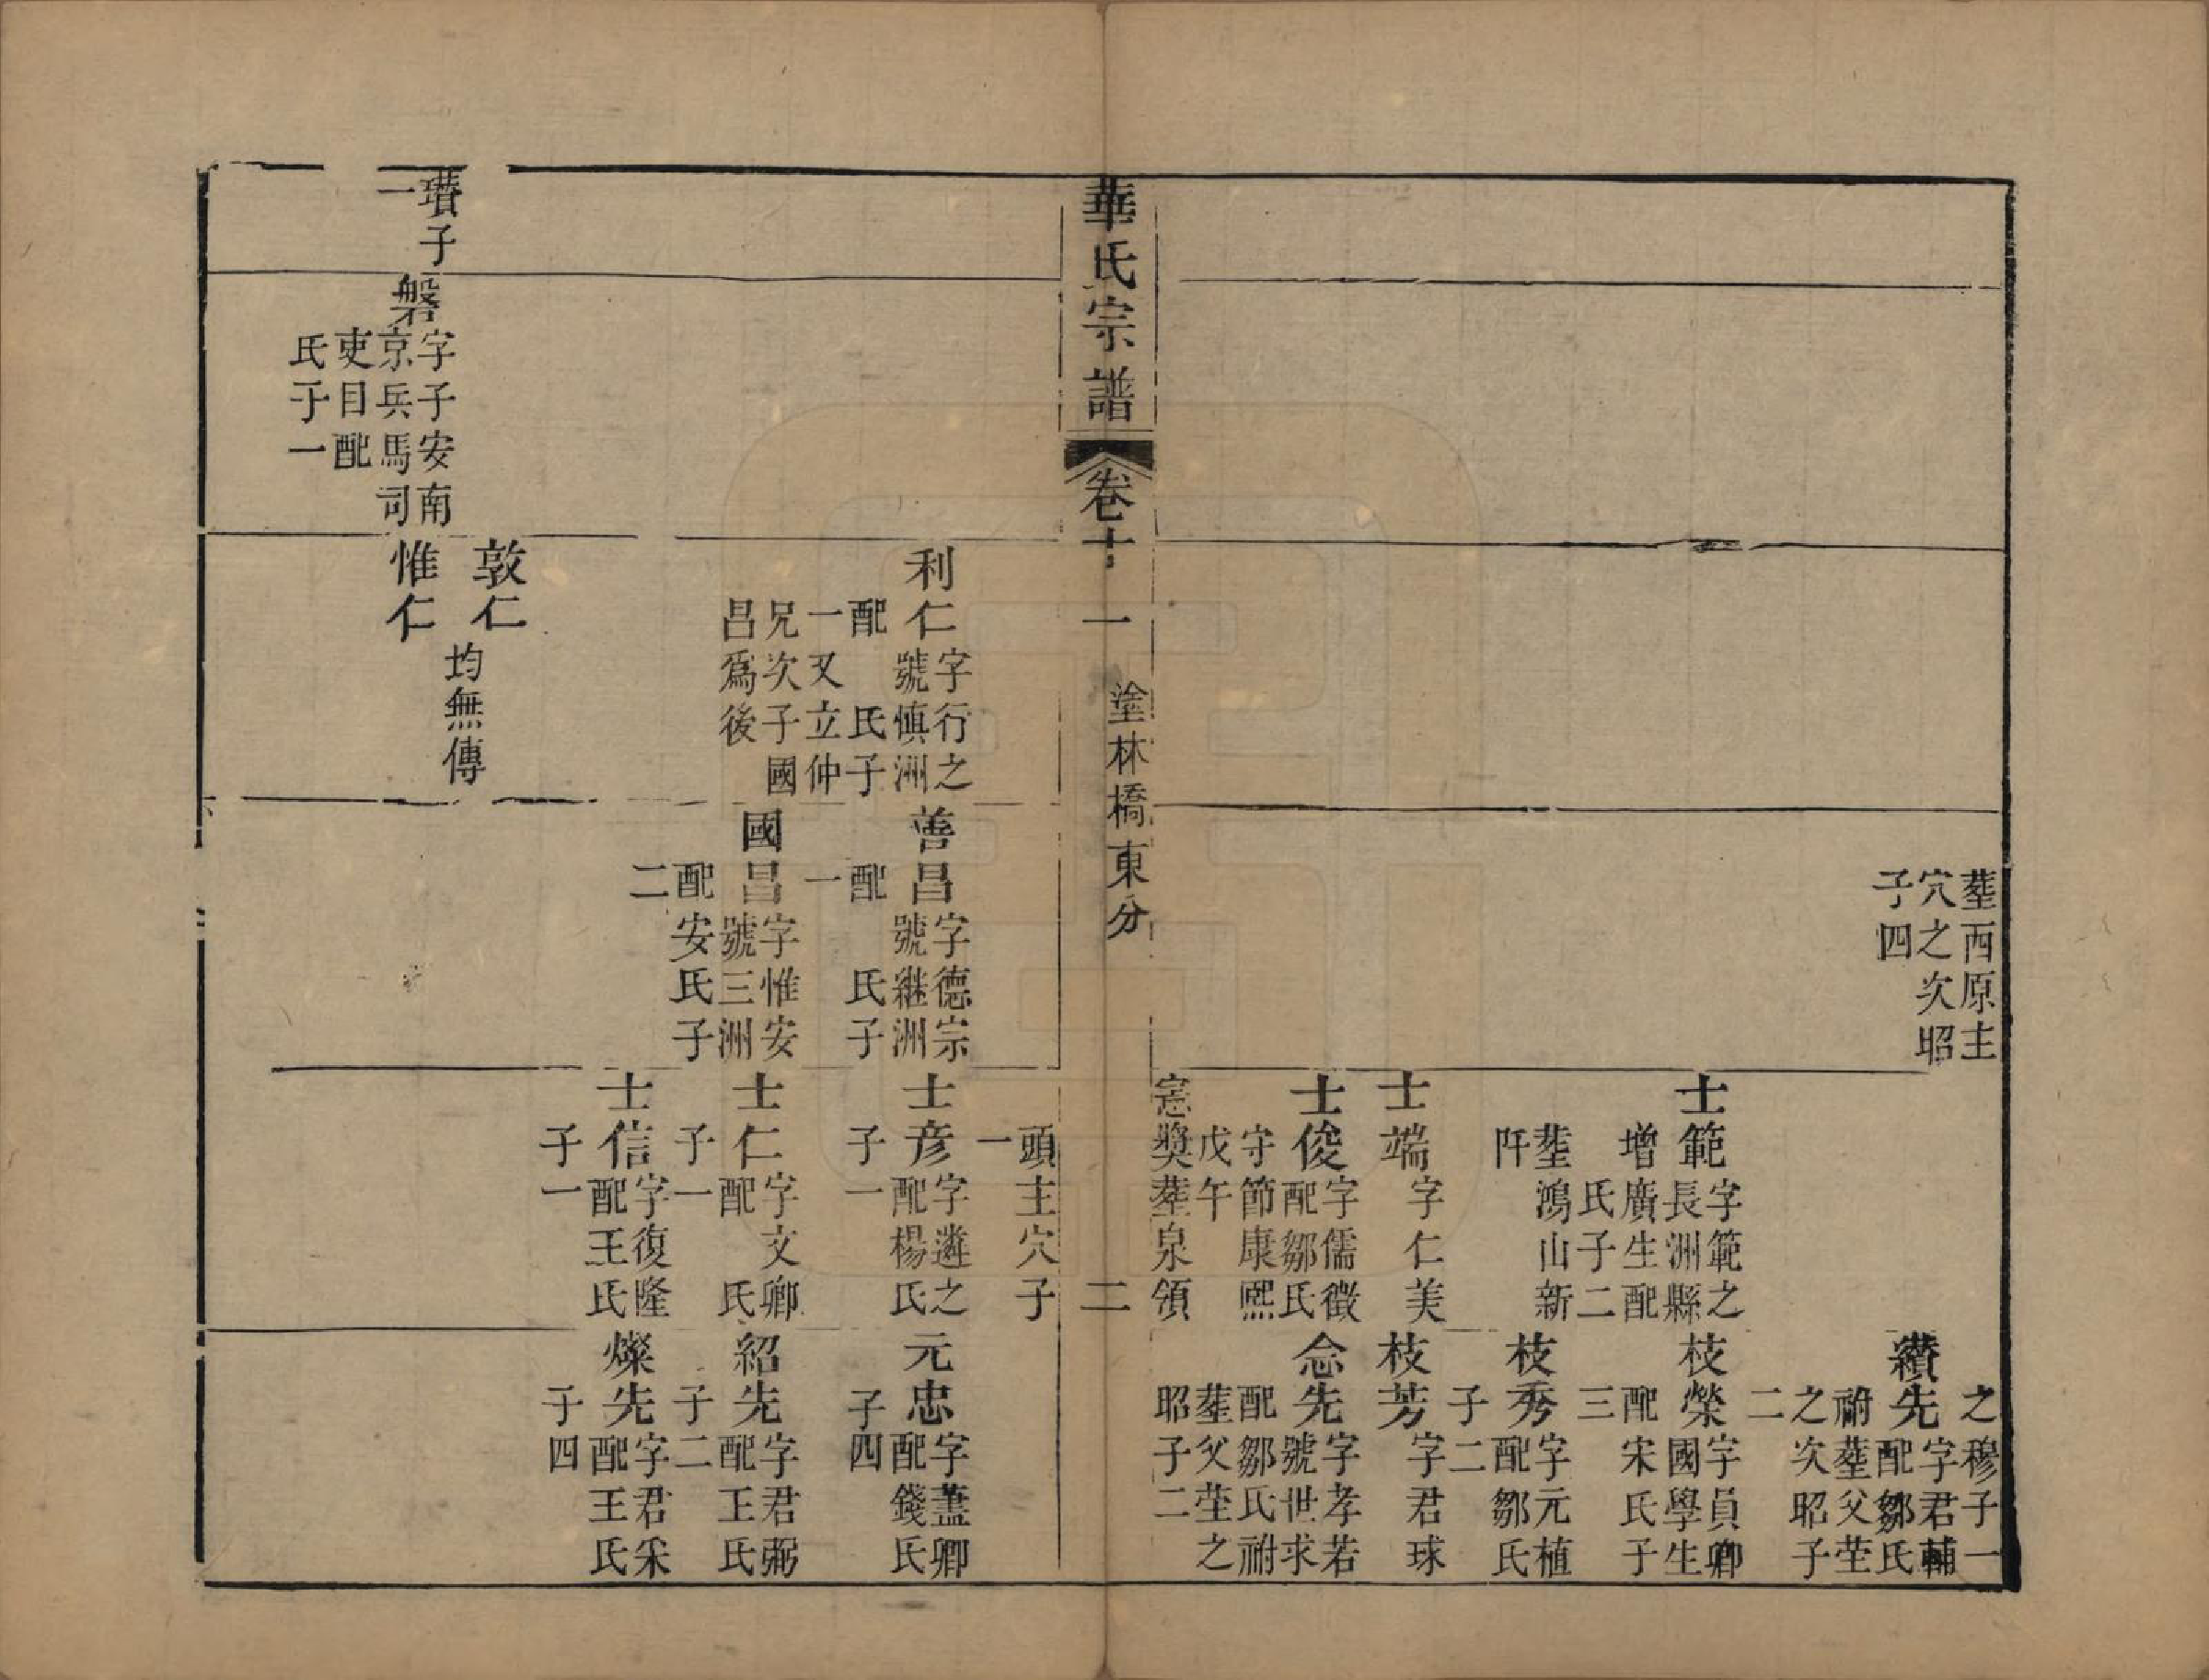 葬西原主
穴之次昭
子四
之穆子一
纘先
字君輔
配鄒氏
祔葬父塋
之次昭子
二
士範
字範之
長洲縣
增廣生配
氏子二
葬鴻山新
阡
枝榮
字員卿
國學生
配宋氏子
三
枝秀
字元植
配鄒氏
子二
士端
字仁美
枝芳
字君球
士俊
字儒徵
配鄒氏
守節康熙
戊午
憲獎葬泉領
頭主穴子
一
念先
字孝若
號世求
配鄒氏祔
葬父塋之
昭子二
華氏宗譜
卷十一
塗林橋東分
二
利仁
字行之
號慎洲
配 氏子
一又立仲
兄次子國
昌爲後
善昌
字德宗
號繼洲
配 氏子
一
士彥
字遴之
配楊氏
子一
元忠
字藎卿
配錢氏
子四
國昌
字惟安
號三洲
配安氏子
二
士仁
字文卿
配 氏
子一
紹先
字君弼
配王氏
子二
士信
字復隆
配王氏
子一
燦先
字君采
配王氏
子四
瓚子
一
磐
字子安南
京兵馬司
吏目配
氏子一
敦仁
惟仁
均無傳